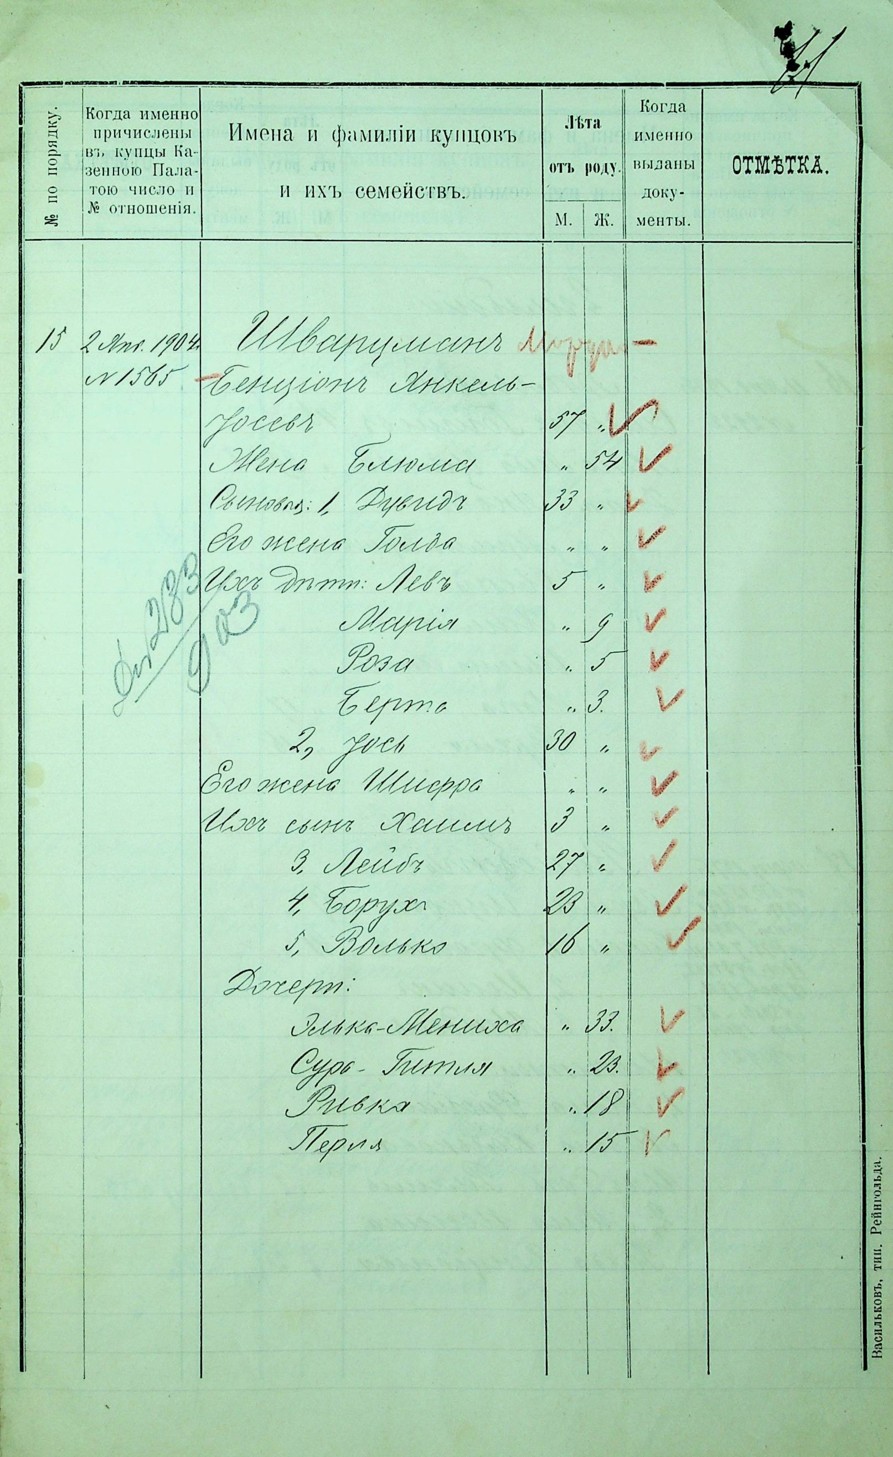 № по порядку.
Когда именно
причислены
въ купцы Ка-
зенною Пала-
тою число и
№ отношенія.
Имена и фамиліи купцовъ
и ихъ семействъ.
Лѣта
отъ роду.
М. Ж.
Когда
именно
выданы
доку-
менты.
ОТМѢТКА.
15 2 Янв. 1904. Шварцманъ
N 1565 Бенціонъ Янкель-
Іосевъ 57 "
Жена Блюма " 54
Сыновья: 1, Дувидъ 33 "
Его жена Голда " "
Ихъ дѣти: Левъ 5 "
Марія " 9
Роза " 5
Берта " 3.
2, Іось 30 "
Его жена Шифра " "
Ихъ сынъ Хаимъ 3 "
3, Лейбъ 27 "
4, Борухъ 23 "
5, Волько 16 "
Дочери:
Элька-Мениха " 33.
Сура-Гитля " 23.
Ривка " 18
Перля " 15
283
903
Васильковъ, тип. Рейнгольда.